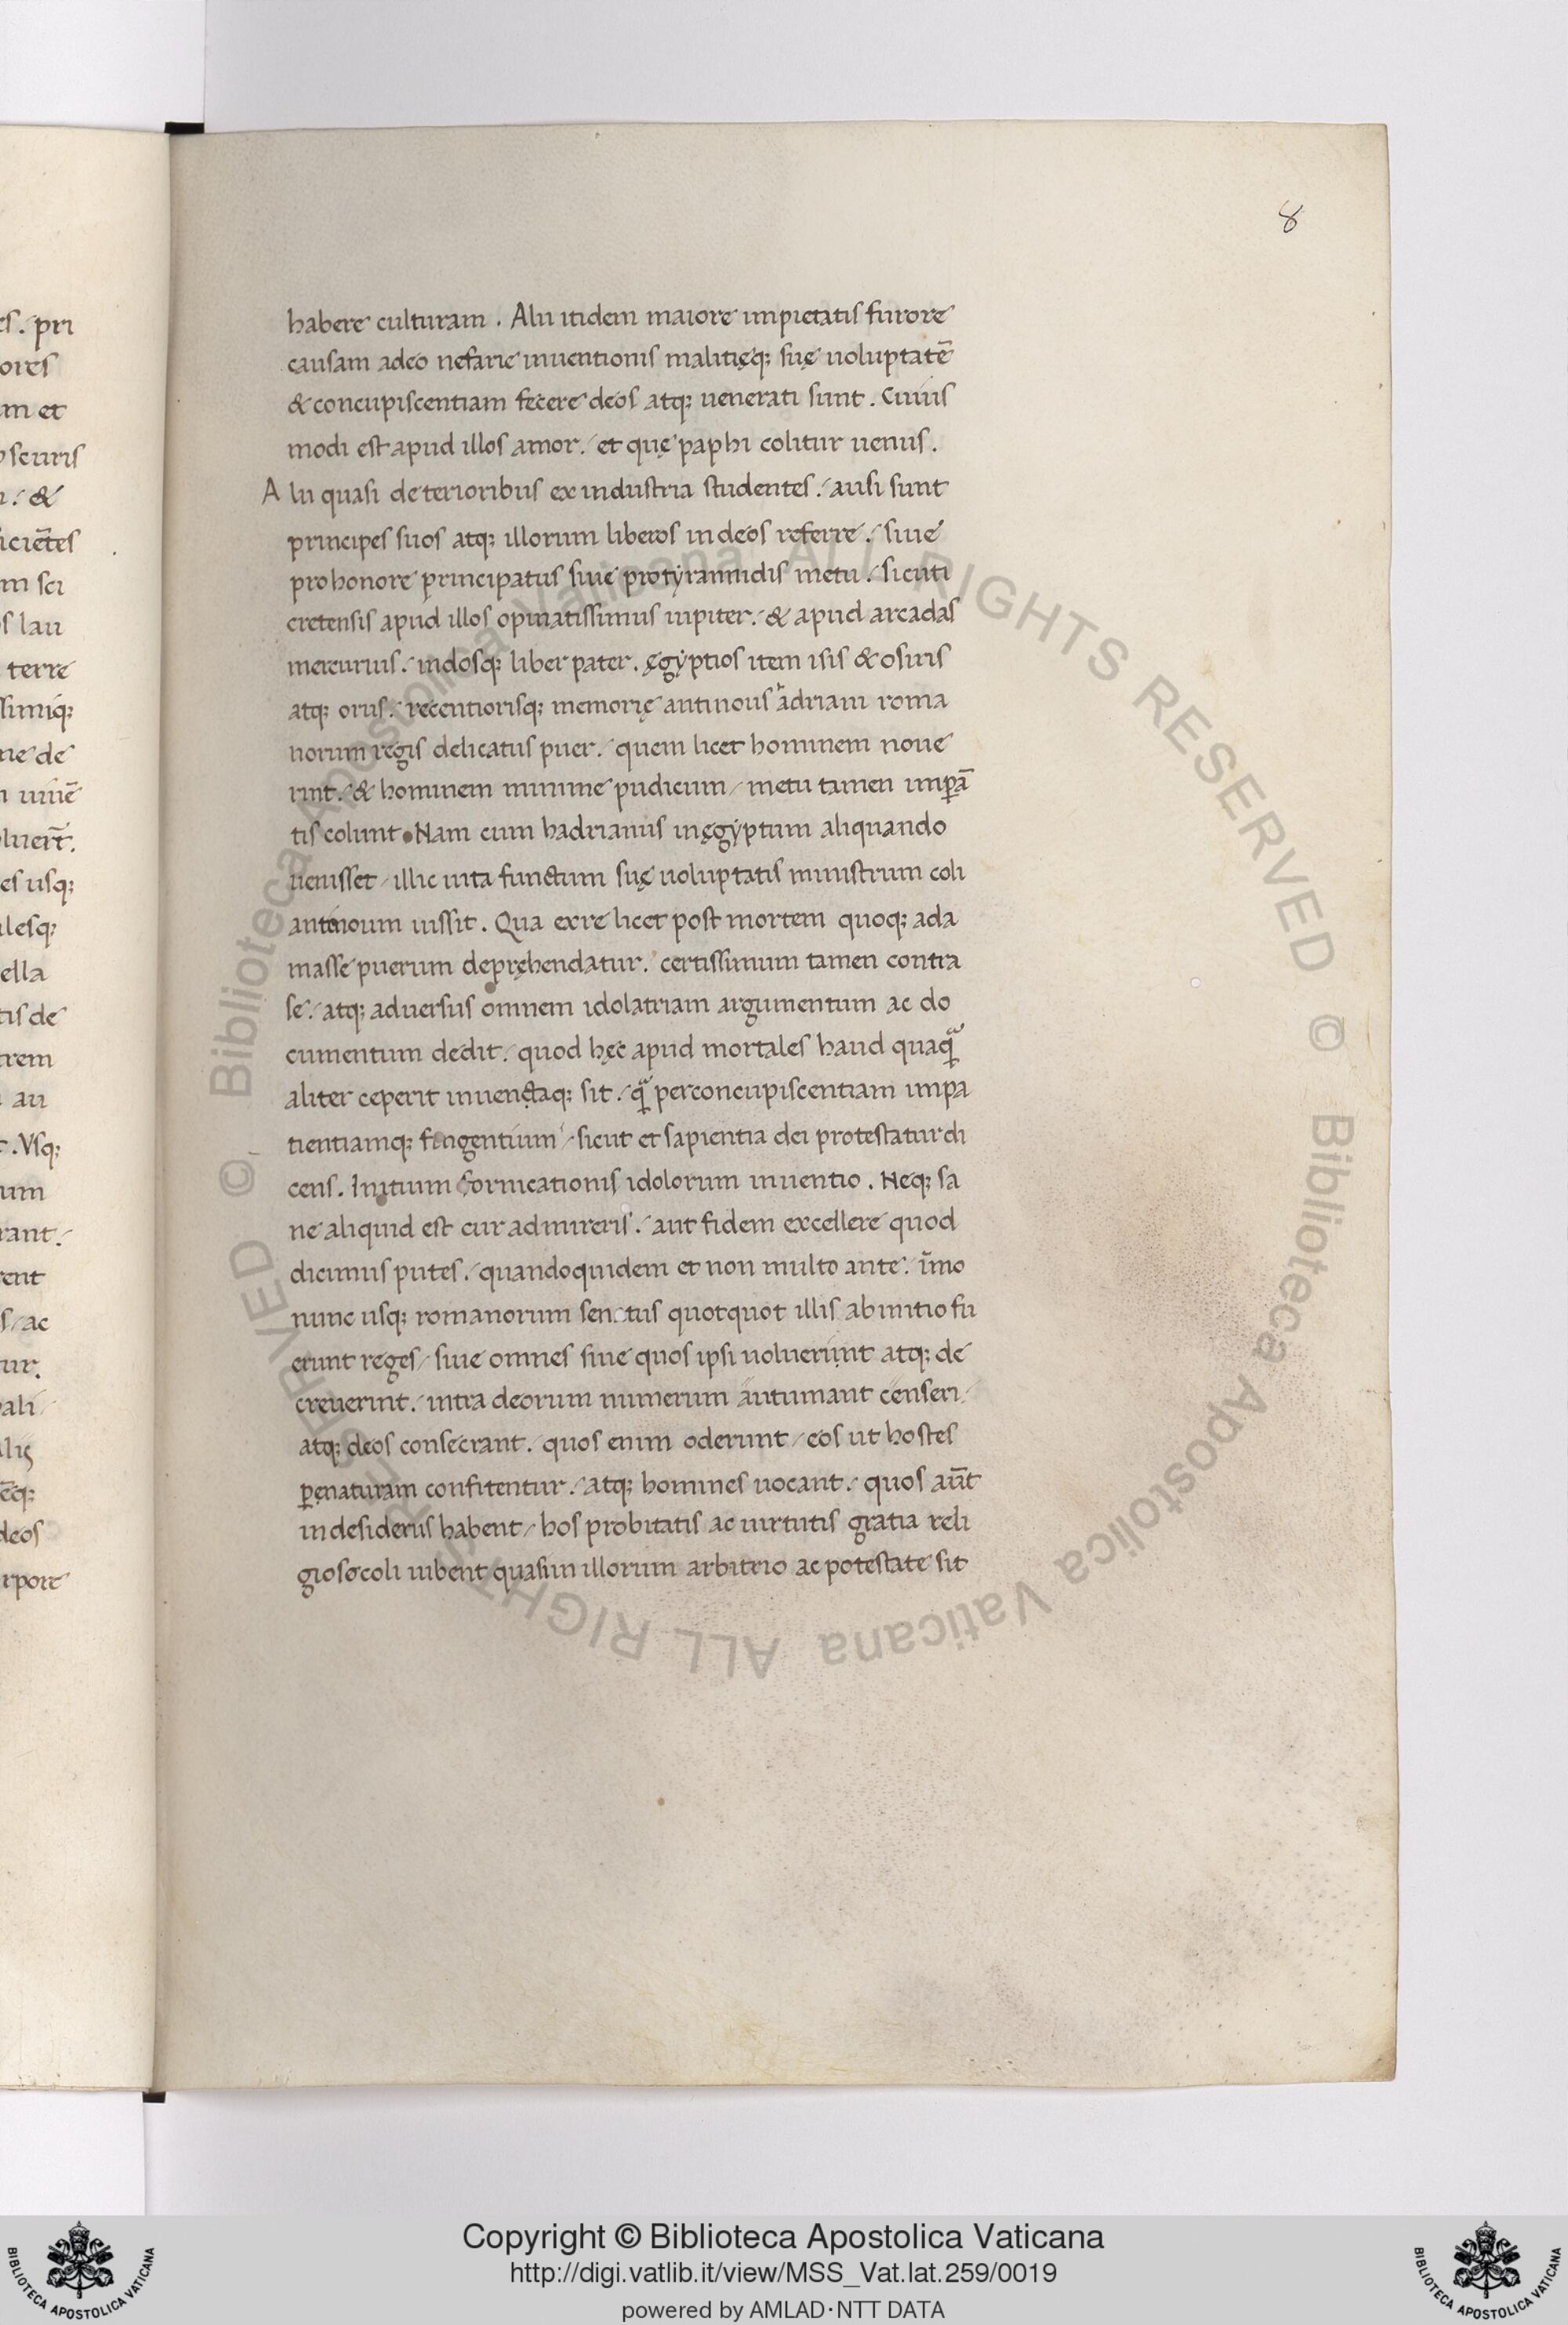 8
habere culturam . Alii itidem maiore impietatis furore
causam adeo nefarie inuentionis malitięq; suę uoluptatē
& concupiscentiam fecere deos atq; uenerati sunt . Cuius
modi est apud illos amor ./ et quę paphi colitur uenus .
Alii quasi deterioribus ex industria studentes ./ ausi sunt
principes suos atq; illorum liberos in deos referre ./ siue
pro honore principatus siue pro tyrannidis metu ./ sicuti
cretensis apud illos opinatissimus iupiter ./ & apud arcadas
mercurius ./ indosq; liber pater . ęgyptios item isis & osiris
atq; orus ./ recentiorisq; memorię antinous adriani roma
norum regis delicatus puer ./ quem licet hominem noue
rint ./ & hominem minime pudicum / metu tamen imperā
tis colunt . Nam cum hadrianus in ęgyptum aliquando
uenisset / illic uita functum suę uoluptatis ministrum coli
antinoum iussit . Qua ex re licet post mortem quoq; ada
masse puerum depręhendatur . certissimum tamen contra
se ./ atq; aduersus omnem idolatriam argumentum ac do
cumentum dedit ./ quod hęc apud mortales haud quaq̃
aliter ceperit inuectaq; sit ./ q̃ per concupiscentiam impa
tientiamq; fingentium / sicut et sapientia dei protestatur di
cens . Initium fornicationis idolorum inuentio . Neq; sa
ne aliquid est cur admireris ./ aut fidem excellere quod
dicimus putes ./ quandoquidem et non multo ante ./ īmo
nunc usq; romanorum senatus quotquot illis ab initio fu
erunt reges / siue omnes siue quos ipsi uoluerint atq; de
creuerint ./ intra deorum numerum autumant censeri /
atq; deos consecrant ./ quos enim oderunt / eos ut hostes
pene naturam confitentur ./ atq; homines uocant ./ quos aūt
in desideriis habent / hos probitatis ac uirtutis gratia reli
giose coli iubent quasi in illorum arbitrio ac potestate sit
© Biblioteca Apostolica Vaticana ALL RIGHTS RESERVED © Biblioteca Apostolica Vaticana ALL RIGHTS RESERVED
Copyright © Biblioteca Apostolica Vaticana
http://digi.vatlib.it/view/MSS_Vat.lat.259/0019
powered by AMLAD·NTT DATA
BIBLIOTECA APOSTOLICA VATICANA
BIBLIOTECA APOSTOLICA VATICANA